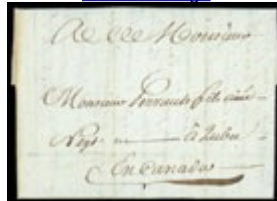 A Monsieur
Monsieur Perrault fils ainé
Negt à Quebec
En Canada